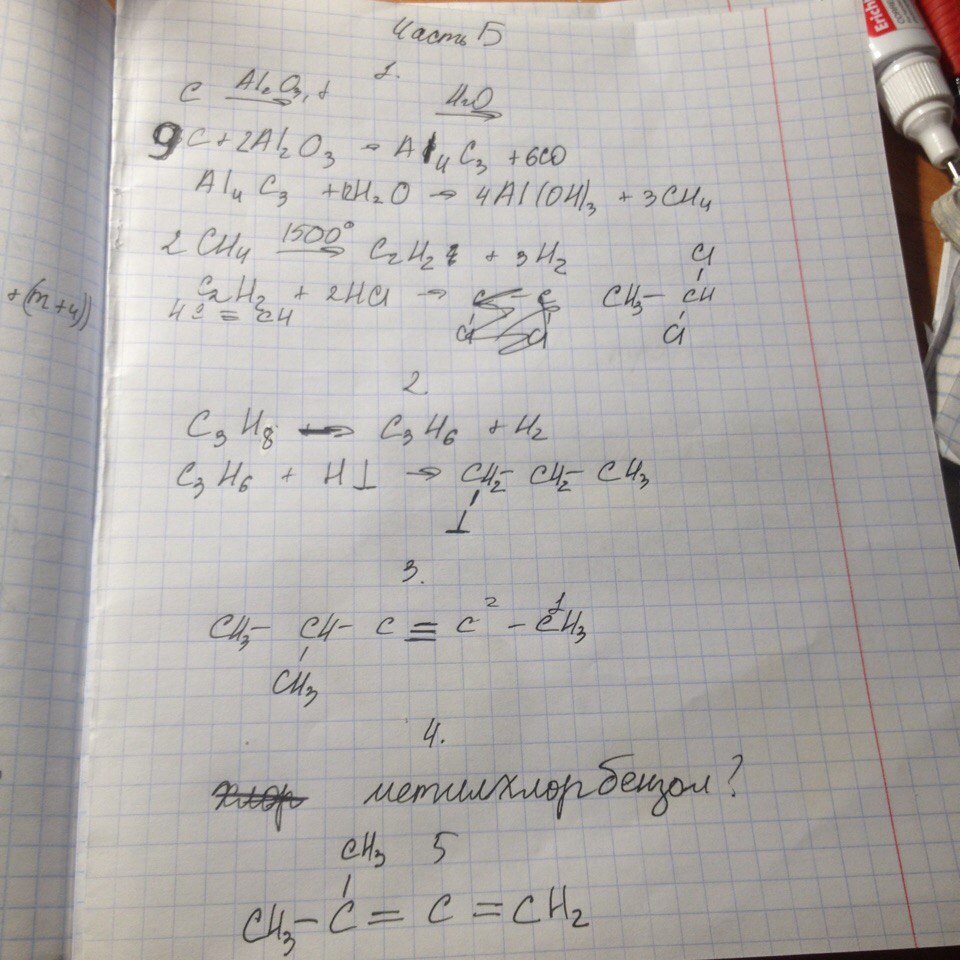 Часть Б
1.
C Al₂O₃, t → H₂O →
9C + 2Al₂O₃ → Al₄C₃ + 6CO
Al₄C₃ + 12H₂O → 4Al(OH)₃ + 3CH₄
2CH₄ 1500° → C₂H₂ + 3H₂
Cl
C₂H₂ + 2HCl → CH₃ – CH
HC ≡ CH Cl
+(n+4))
2.
C₃H₈ → C₃H₆ + H₂
C₃H₆ + HI → CH₂ – CH₂ – CH₃
I
3.
CH₃ – CH – C ≡ C² – C¹H₃
CH₃
4.
хлор метилхлорбензол?
CH₃ 5
CH₃ – C = C = CH₂
Erich